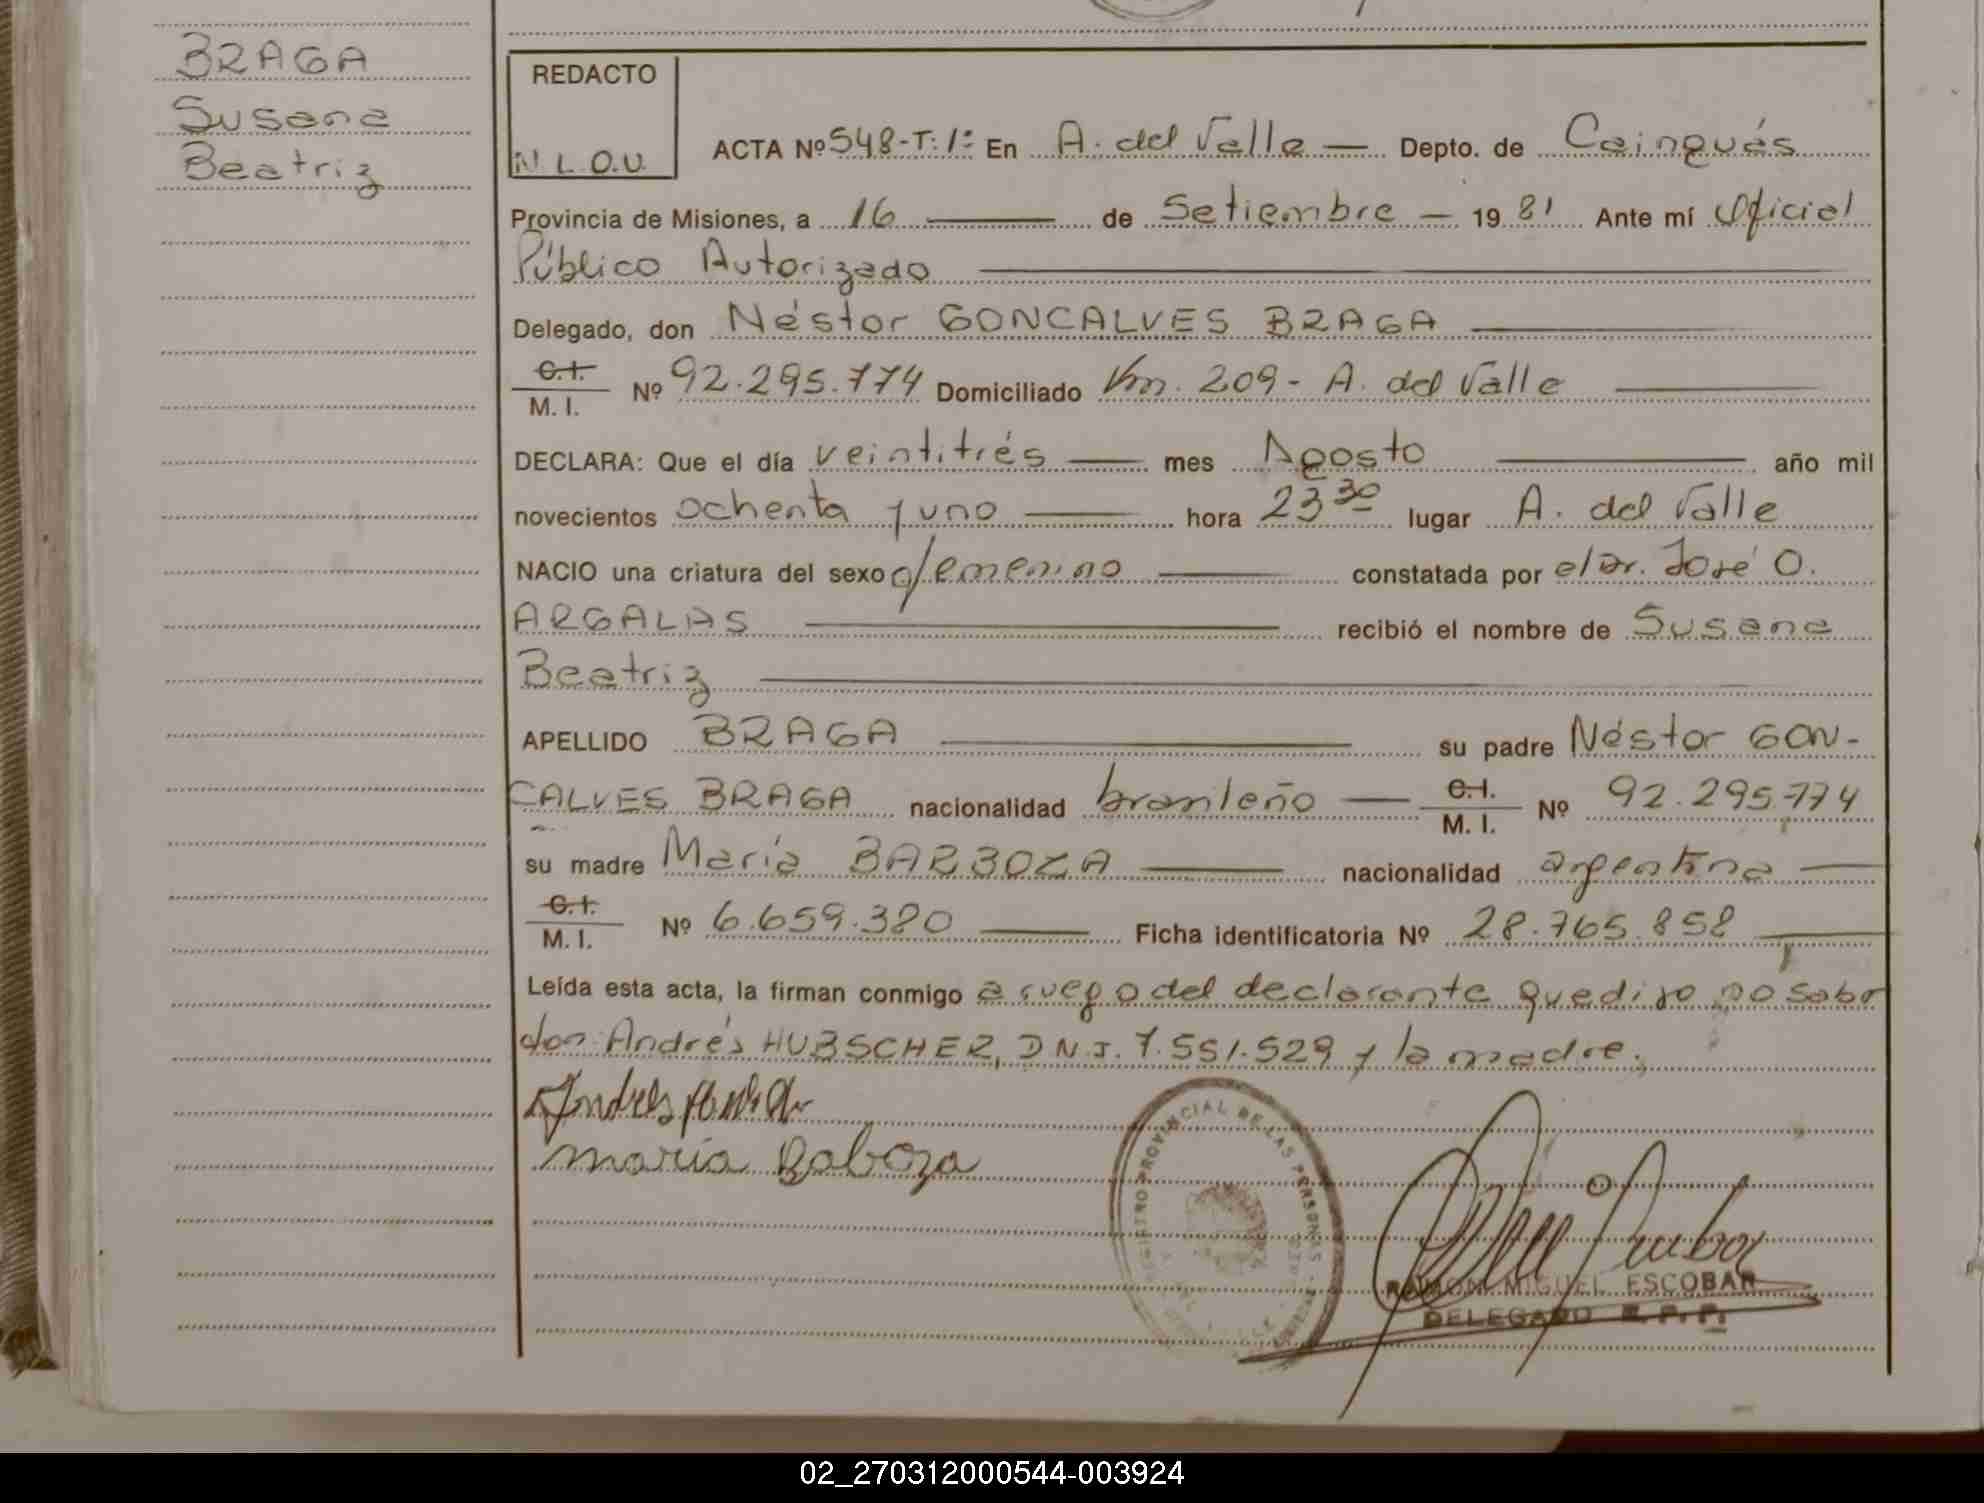 BRAGA
Susana
Beatriz
REDACTO
N.L.O.U.
ACTA Nº 548-T:1º En A. del Valle — Depto. de Cainguás
Provincia de Misiones, a 16 — de Setiembre — 19 81 Ante mí Oficial
Público Autorizado
Delegado, don Néstor GONCALVES BRAGA
C.I. / M. I. Nº 92.295.774 Domiciliado Km. 209 - A. del Valle
DECLARA: Que el día veintitrés — mes Agosto — año mil
novecientos ochenta y uno — hora 23 30 lugar A. del Valle
NACIO una criatura del sexo femenino — constatada por el Dr. José O.
ARGALAS — recibió el nombre de Susana
Beatriz
APELLIDO BRAGA — su padre Néstor GON-
CALVES BRAGA nacionalidad brasileño — C.I. / M. I. Nº 92.295.774
su madre María BARBOZA — nacionalidad argentina —
C.I. / M. I. Nº 6.659.380 — Ficha identificatoria Nº 28.765.858 —
Leída esta acta, la firman conmigo a ruego del declarante que dijo no saber
don Andrés HUBSCHER, D.N.I. 7.551.529 y la madre.
Andres
maria Baboza
REGISTRO PROVINCIAL DE LAS PERSONAS
RAMON MIGUEL ESCOBAR
DELEGADO R.P.P.
02_270312000544-003924